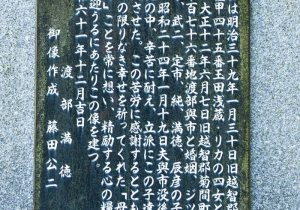 は明治三十九年一月三十日旧越智郡
甲四十五番王田浅蔵・リカの四女と
大正十二年六月七日旧越智郡菊間町
百七十六番地渡部與市と婚姻 ジツ
武二 定市 純 満徳 辰彦の子
昭和二十四年一月十九日夫與市没後
の中 辛苦に耐え 立派にこの子達
させた この苦労に感謝するとも
の限りなき幸せを祈ってくれた 母
」ことを常に想い 精励する心の糧
迎うるにあたりこの像を建つ
六十一年十二月吉日
渡部満徳
御像作成 藤田公二